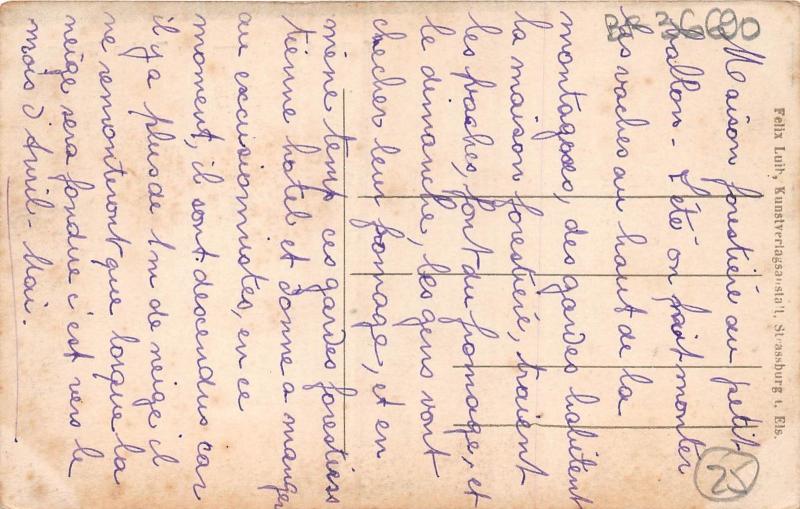 Maison forestière au petit
ballon - L'été on fait monter
les vaches au haut de la
montagnes, des gardes habitent
la maison forestière, traient
les vaches, font du fromage, et
le dimanche, les gens vont
checher leur fromage, et en
mène temps ces gardes forestiers
tienne hotel et donne a manger
au excisionnistes, en ce
moment, il sont descendus car
il y a plus de 1m de neige il
ne remonteront que lorque la
neige sera fondue c'est vers le
mois d'Avril - Mai.
Felix Luib, Kunstverlagsanstalt, Strassburg i. Els.
25